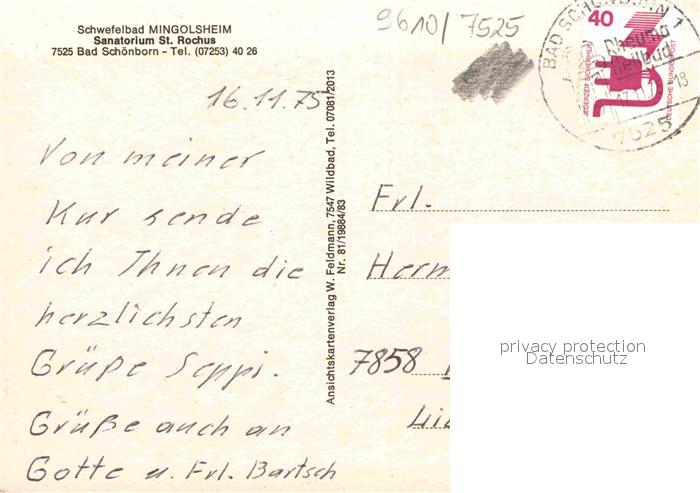 Schwefelbad MINGOLSHEIM
Sanatorium St. Rochus
7525 Bad Schönborn - Tel. (07253) 40 26
9610/7525
16.11.75
Von meiner
Kur sende
ich Ihnen die
herzlichsten
Grüße Seppi.
Grüße auch an
Gotte u. Frl. Bartsch
Ansichtskartenverlag W. Feldmann, 7547 Wildbad, Tel. 07081/2013
Nr. 81/19884/83
40
JEDERZEIT SICHERHEIT
DEUTSCHE BUNDESPOST
BAD SCHÖNBORN 1
Rheuma
Heilbad
7525
Frl.
Herm
7858
privacy protection
Datenschutz